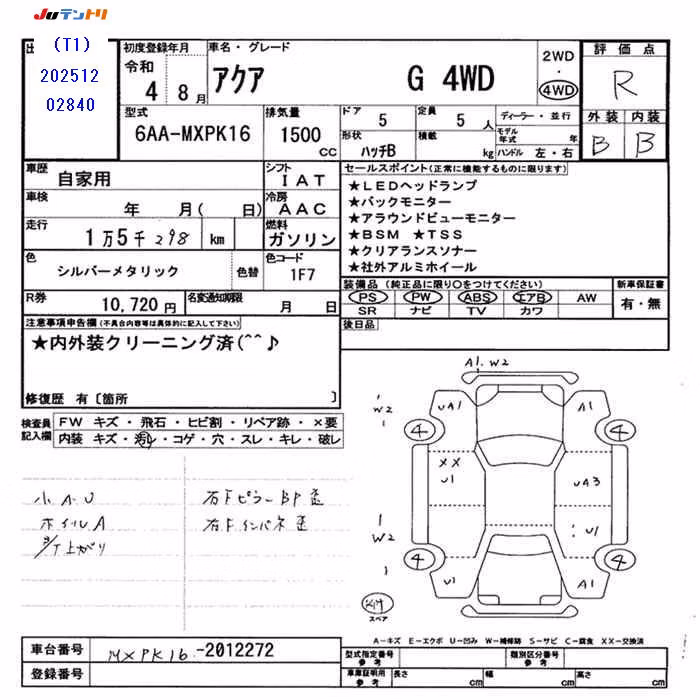 JUテントリ
出
(T1)
202512
02840
初度登録年月
令和
4 8 月
車名・グレード
アクア G 4WD
2WD
・
4WD
評価点
R
外装 内装
B B
型式
6AA-MXPK16
排気量
1500
CC
ドア
5
定員
5 人
ディーラー・並行
形状
ハッチB
積載
kg
モデル年式 年
ハンドル 左・右
車歴
自家用
シフト
IAT
車検
年 月( 日)
冷房
AAC
走行
1万5千298 km
燃料
ガソリン
色
シルバーメタリック
色替
色コード
1F7
R券
10,720円
名変通知期限
月 日
セールスポイント(正常に機能するものに限ります)
★LEDヘッドランプ
★バックモニター
★アラウンドビューモニター
★BSM ★TSS
★クリアランスソナー
★社外アルミホイール
装備品(純正品に限り○をつけてください)
PS PW ABS エアB AW
SR ナビ TV カワ
新車保証書
有・無
後日品
注意事項申告欄(不具合内容等は具体的に記入して下さい)
★内外装クリーニング済(^^♪
修復歴 有〔箇所 〕
検査員
記入欄
FW キズ・飛石・ヒビ割・リペア跡・×要
内装 キズ・汚レ・コゲ・穴・スレ・キレ・破レ
小AU
ホイルA
右Fピラー BP歪
右Fインパネ歪
A1.W2
W2
UA1
A1
4
4
XX
U1
UA3
W2
U1
4
4
U1
A1
スペア
A-キズ E-エクボ U-凹み W-補修跡 S-サビ C-腐食 XX-交換済
車台番号
MXPK16-2012272
登録番号
型式指定番号
参考
類別区分番号
参考
車庫証明用
参考
長さ cm
幅 cm
高さ cm